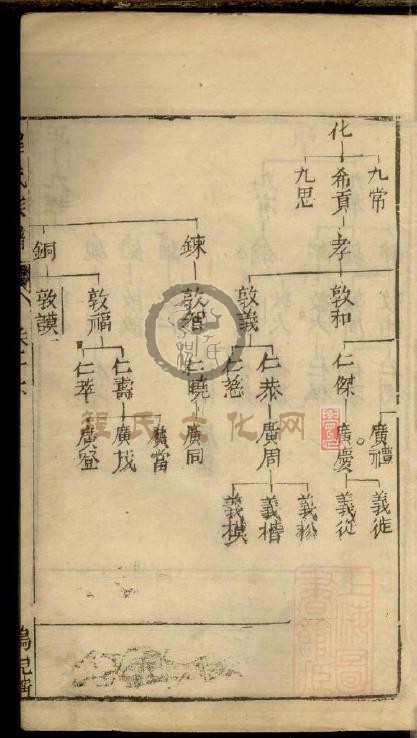 化
九常
希貢
九思
孝
鍊
銅
敦和
敦義
敦智
敦福
敦謨
仁傑
仁恭
仁慈
仁曉
仁壽
仁萃
廣禮
廣慶
廣周
廣同
廣當
廣找
廣宓
義徙
義從
義楷
義模
程氏文化网
程氏族譜